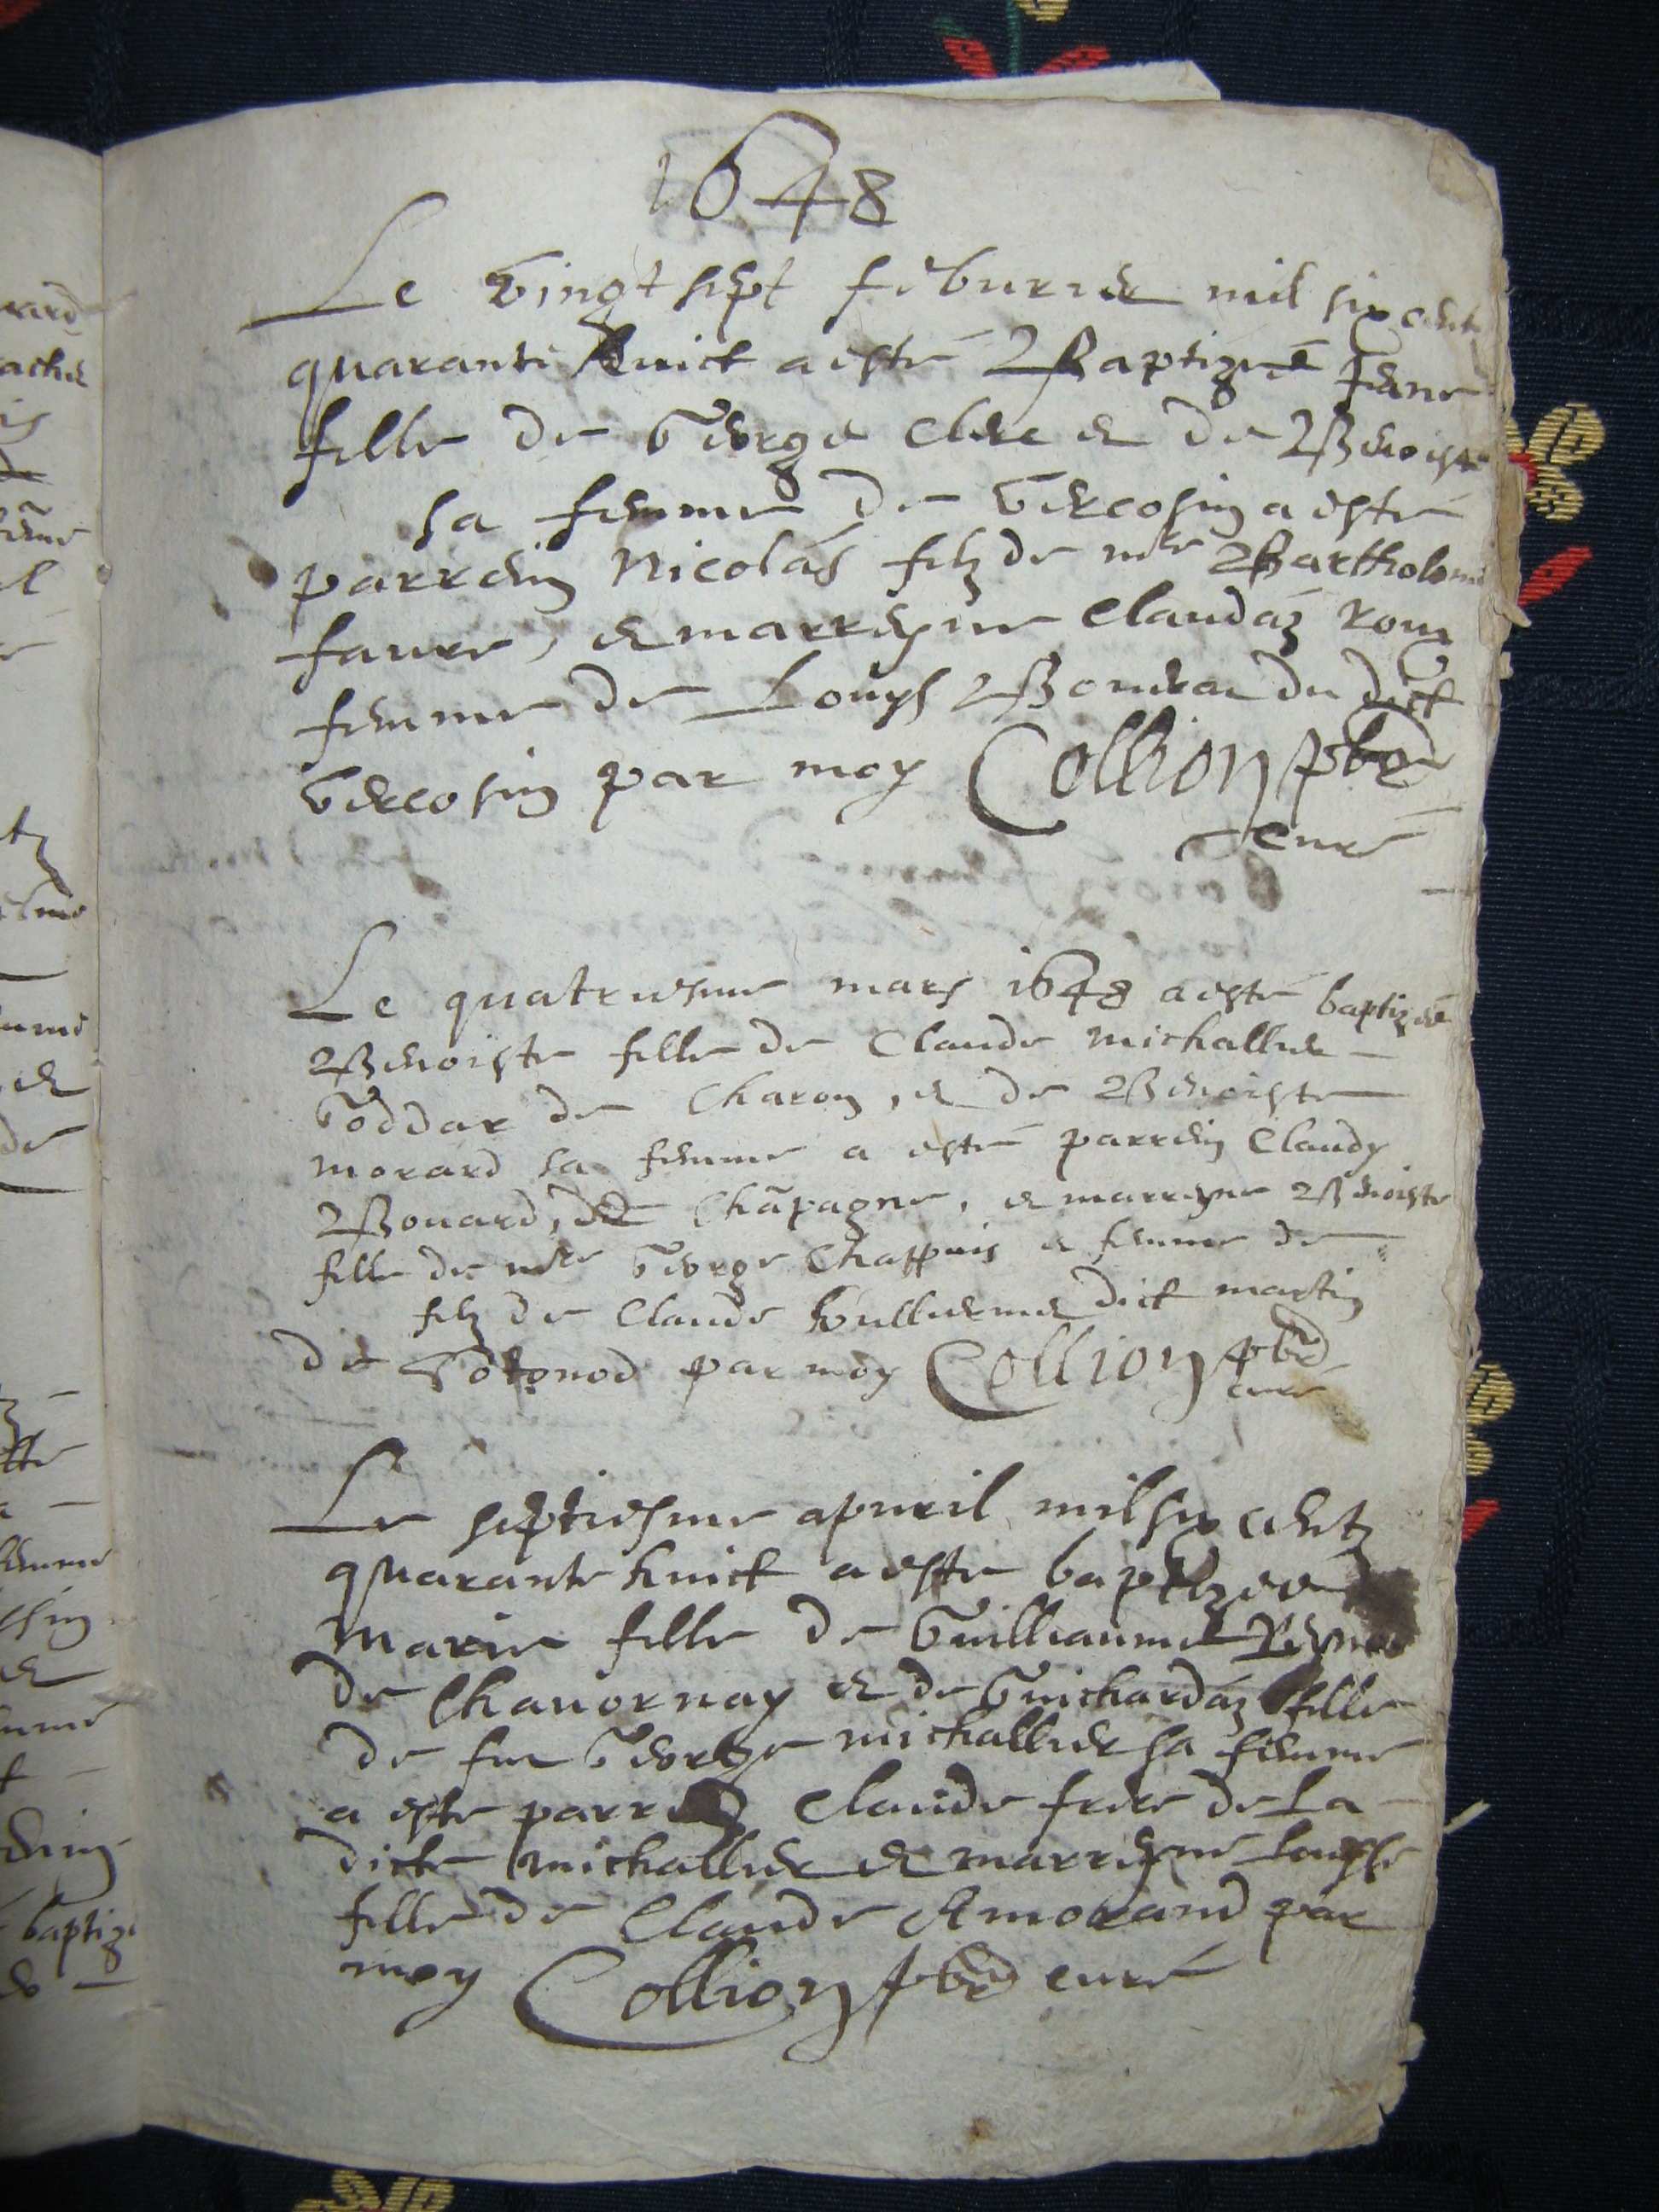 1648
Le vingt sept feburier mil six cent
quarante huict a esté Baptizeé Jeane
fille de George Clerc et de Benoiste
sa femme de vercosin a esté
parrein Nicolas filz de mre Bartholome
faure, et marreyne Claudaz roux
femme de Louys Bonera du dict
vercosin par moy Collion pbr
curé
Le quatriesme mars 1648 a esté baptizeé
Benoiste fille de Claude michallier
Goddar de Charon, et de Benoiste
morard sa femme a esté parrein Claudy
Bouard, de Chãpagne, et marreyne Benoiste
fille de mre George Chappuis et femme de
filz de Claude Guilliermet dict martin
de Sotonod par moy Collion pbr
curé
Le septiesme apvril mil six centz
quarante huict a este baptizeé
marie fille de Guilliaume
de Chavornay et de Guichardaz fille
de feu George michallier sa femme
a este parrein Claude frere de la
dicte michallier et marreyne Louyse
fille de Claude Amorand par
moy Collion pbr curé